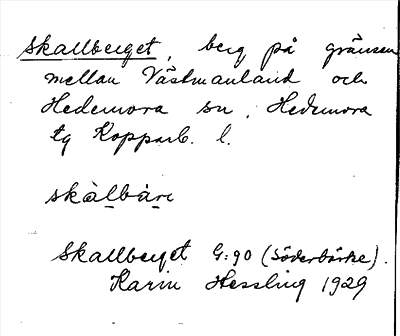 Skallberget, berg på gränsen
mellan Västmanland och
Hedemora sn, Hedemora
tg Kopparb. l.
skàlbàre
Skallberget G:90 (Söderbärke).
Karin Hessling 1929